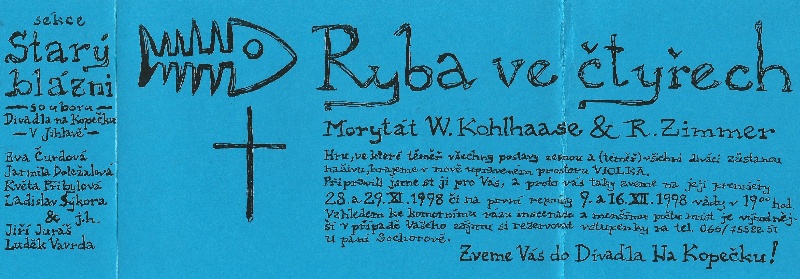 sekce
Starý
blázni
souboru
Divadla na Kopečku
v Jihlavě
Eva Čurdová
Jarmila Doležalová
Květa Přibylová
Ladislav Sýkora
& j.h.
Jiří Juráš
Luděk Vavrda
Ryba ve čtyřech
Morytát W. Kohlhaase & R. Zimmer
Hru, ve které téměř všechny postavy zemřou a (téměř) všichni diváci zůstanou
naživu, hrajeme v nově upraveném prostoru VIOLKA.
Připravili jsme si ji pro Vás, a proto vás taky zveme na její premiéry
28. a 29. XI 1998 či na první reprízy 9. a 16. XII 1998 vždy v 19 00 hod.
Vzhledem ke komornímu rázu inscenace a menšímu počtu míst je výhodněj-
ší v případě Vašeho zájmu si rezervovat vstupenky na tel. 066/
u paní Sochorové.
Zveme Vás do Divadla Na Kopečku!